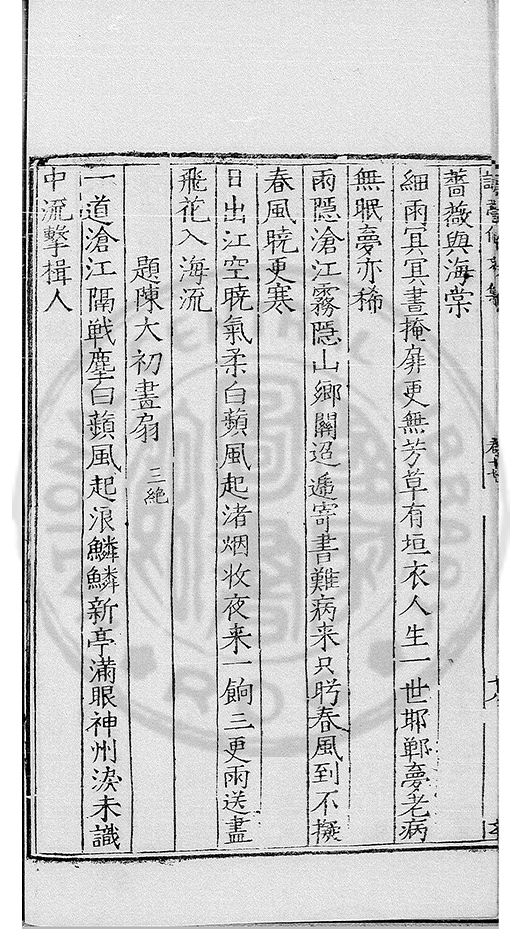 薔薇與海棠
細雨冥冥晝掩扉更無芳草有垣衣人生一世邯鄲夢老病
無眠夢亦稀
雨隠滄江霧隠山鄉關迢遞寄書難病来只盻春風到不擬
春風曉更寒
日出江空曉氣柔白蘋風起渚烟收夜来一餉三更雨送盡
飛花入海流
題陳大初畫扇 三絶
一道滄江隔戦塵白蘋風起浪鱗鱗新亭滿眼神州淚未識
中流擊楫人